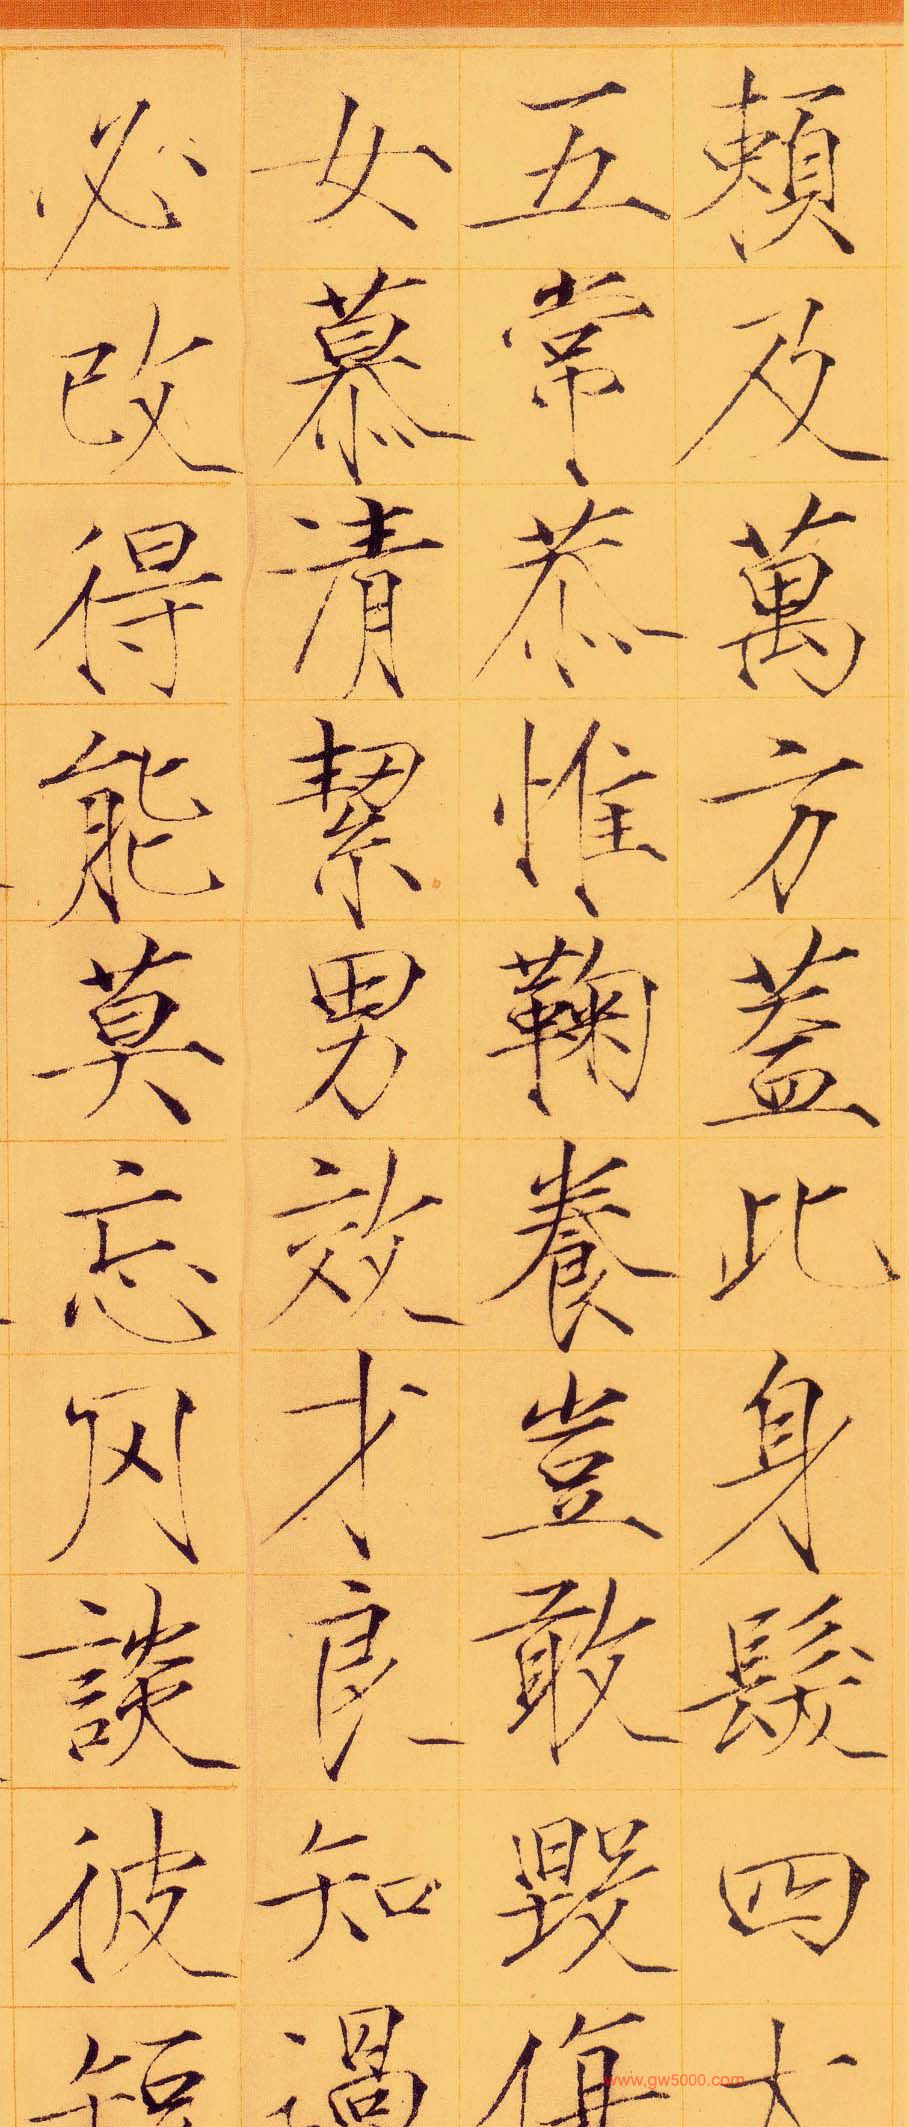 賴及萬方蓋此身髮四大
五常恭惟鞠養豈敢毀傷
女慕清絜男效才良知過
必改得能莫忘罔談彼短
www.gw5000.com